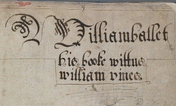 William ballet
his booke wittnes
william vines